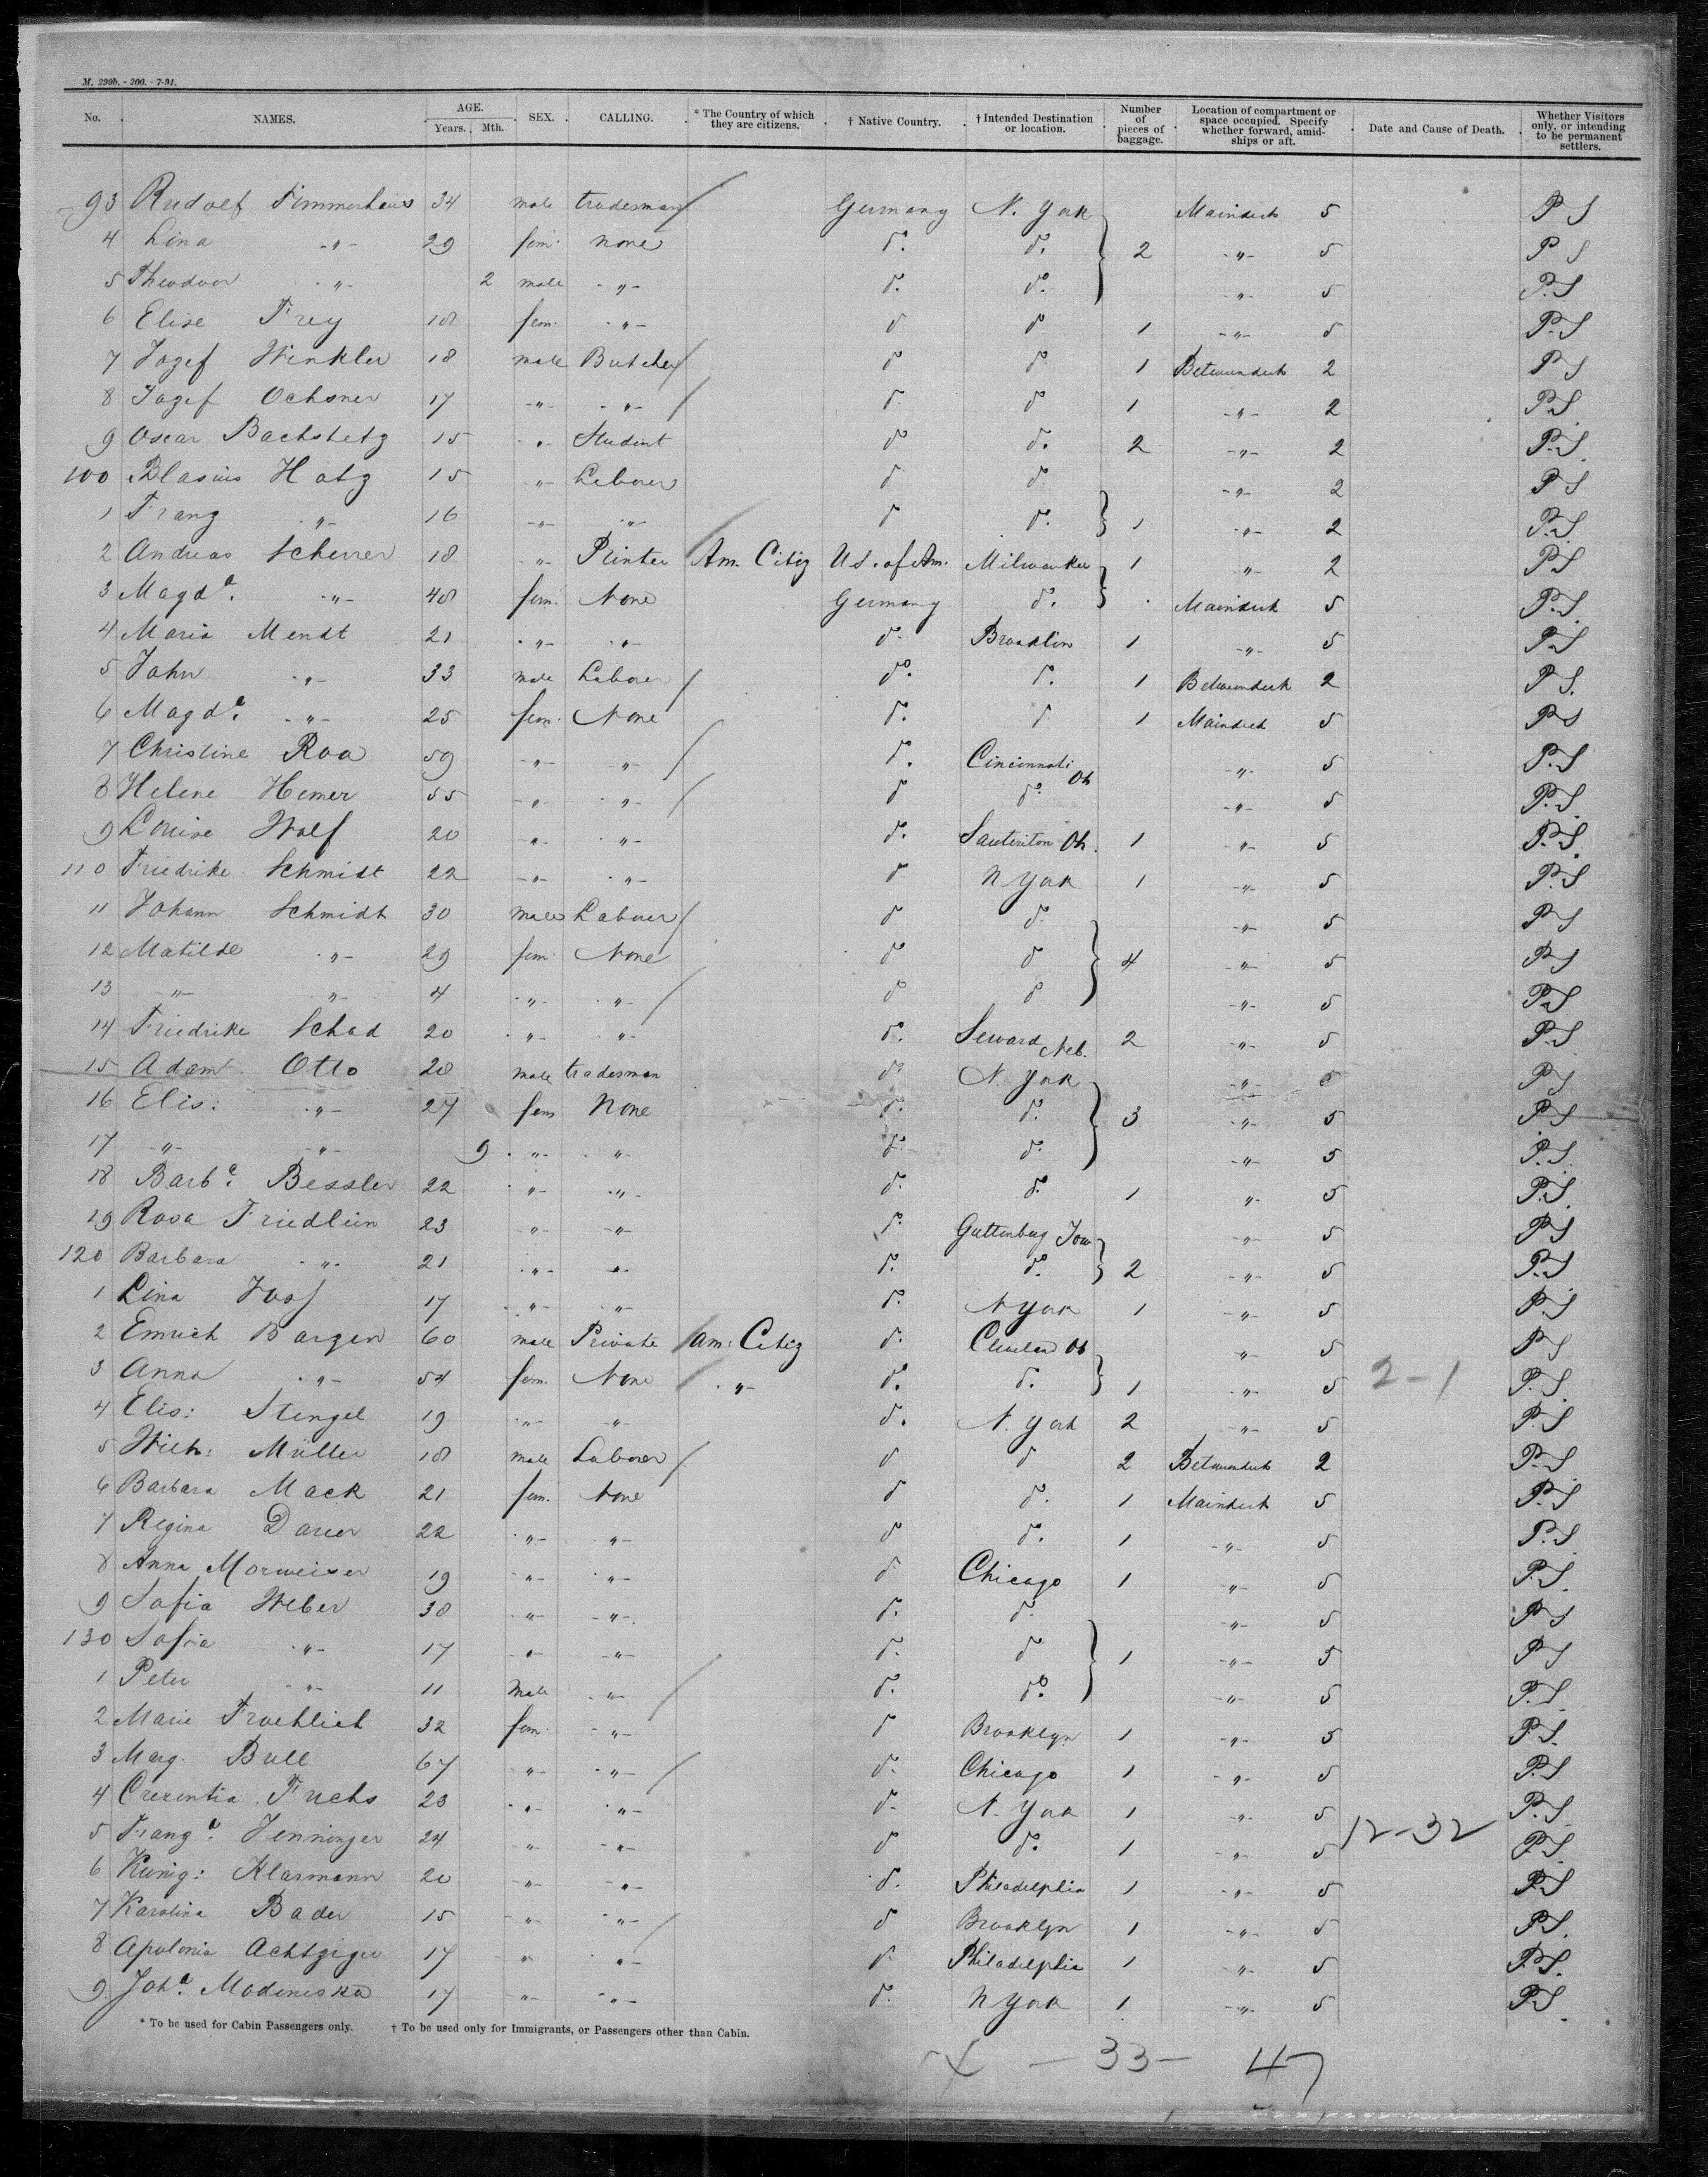 M. 299b. - 200. - 7-91.
No. NAMES. AGE. Years. Mth. SEX. CALLING. * The Country of which they are citizens. † Native Country. † Intended Destination or location. Number of pieces of baggage. Location of compartment or space occupied. Specify whether forward, amidships or aft. Date and Cause of Death. Whether Visitors only, or intending to be permanent settlers.
93 Rudolf Timmerhaus 34 male tradesman Germany N. York Maindeck 5 P S
4 Lina -„- 29 fem. none do. do. 2 -„- 5 P S
5 Theodoor -„- 2 male -„- do. do. -„- 5 P.S
6 Elise Frey 18 fem. -„- do do 1 -„- 5 P.S
7 Jozef Winkler 18 male Butcher do do. 1 Betweendeck 2 P S
8 Jozef Ochsner 17 -„- -„- do do 1 -„- 2 P.S
9 Oscar Bachstetz 15 -„- Student do do. 2 -„- 2 P.S.
100 Blasius Hotz 15 -„- Laborer do do -„- 2 P S
1 Franz -„- 16 -„- -„- do do. 1 -„- 2 P.S
2 Andreas Scherrer 18 -„- Printer Am. Citiz U.S. of Am. Milwaukee 1 -„- 2 P S
3 Magda. -„- 48 fem. None Germany do. Maindeck 5 P.S.
4 Maria Mendt 21 -„- -„- do. Brooklin 1 -„- 5 P S
5 John -„- 33 male Laborer do. do. 1 Betweendeck 2 P S.
6 Magda. -„- 25 fem. None do. do 1 Maindeck 5 P S
7 Christine Roa 59 -„- -„- do. Cincinnati Oh -„- 5 P.S
8 Helene Hemer 55 -„- -„- do do. -„- 5 P.S.
9 Louise Wolf 20 -„- -„- do. Oh. 1 -„- 5 P.S.
110 Friedrike Schmidt 22 -„- -„- do N York 1 -„- 5 P.S
11 Johann Schmidt 30 male Laborer do do. -„- 5 P S
12 Matilde -„- 29 fem. None do do 4 -„- 5 P S
13 -„- -„- 4 -„- -„- do do -„- 5 P.S
14 Friedrike Schad 20 -„- -„- do. Seward Neb. 2 -„- 5 P.S
15 Adam Otto 28 male tradesman do. N. York -„- 5 P S
16 Elis: -„- 27 fem None do. do. 3 -„- 5 P S
17 -„- -„- 9 -„- -„- do. do. -„- 5 P.S.
18 Barba. Bessler 22 -„- -„- do. do. 1 -„- 5 P.S.
19 Rosa Friedlein 23 -„- -„- do. Guttenberg Iow -„- 5 P S
120 Barbara -„- 21 -„- -„- do. do. 2 -„- 5 P.S
1 Lina Joos 17 -„- -„- do. N York 1 -„- 5 P.S
2 Emrich Bargen 60 male Private Am: Citiz do. Cleveland Oh -„- 5 P S
3 Anna -„- 54 fem. None -„- do. do. 1 -„- 5 2-1 P.S.
4 Elis: Stengel 19 -„- -„- do. N. York 2 -„- 5 P.S
5 Wilh: Müller 18 male Laborer do do 2 Betweendeck 2 P.S
6 Barbara Mack 21 fem. None do do. 1 Maindeck 5 P.S
7 Regina Darer 22 -„- -„- do do. 1 -„- 5 P.S.
8 Anna Morweiser 19 -„- -„- do Chicago 1 -„- 5 P.S.
9 Sofia Weber 38 -„- -„- do. do. -„- 5 P S
130 Sofia -„- 17 -„- -„- do. do 1 -„- 5 P S
1 Peter -„- 11 Male -„- do. do. -„- 5 P.S.
2 Marie Froehlich 32 fem. -„- do Brooklyn 1 -„- 5 P.S.
3 Marg. Bull 67 -„- -„- do. Chicago 1 -„- 5 P.S.
4 Crezentia Fuchs 23 -„- -„- do. N. York 1 -„- 5 P.S.
5 Franza. Jenninger 24 -„- -„- do do. 1 -„- 5 12-32 P.S.
6 Kunig: Klarmann 20 -„- -„- do. Philadelphia 1 -„- 5 P.S
7 Karolina Bader 15 -„- -„- do Brooklyn 1 -„- 5 P.S.
8 Apolonia Achtziger 17 -„- -„- do. Philadelphia 1 -„- 5 P.S.
9 Joha. Modineska 17 -„- -„- do. N York 1 -„- 5 P.S.
* To be used for Cabin Passengers only. † To be used only for Immigrants, or Passengers other than Cabin.
- 33 - 47